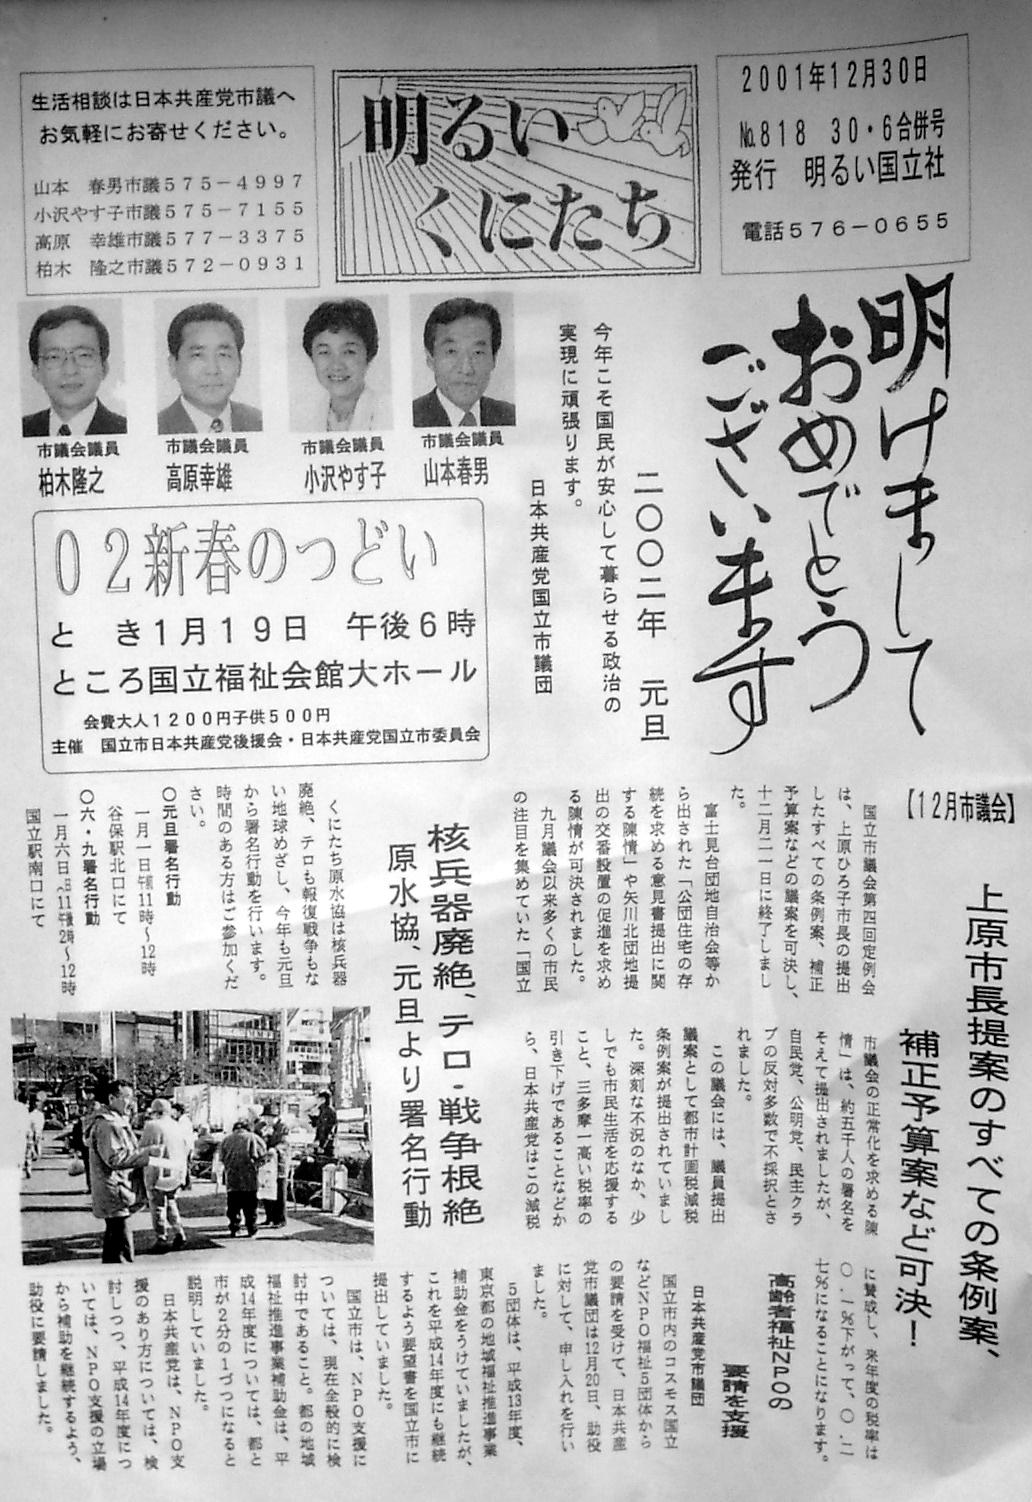 生活相談は日本共産党市議へ
お気軽にお寄せください。
山本　春男市議５７５－４９９７
小沢やす子市議５７５－７１５５
高原　幸雄市議５７７－３３７５
柏木　隆之市議５７２－０９３１
明るい
くにたち
２００１年１２月３０日
№８１８　３０・６合併号
発行　明るい国立社
電話５７６－０６５５
明けまして
おめでとう
ございます
二〇〇二年　元旦
今年こそ国民が安心して暮らせる政治の
実現に頑張ります。
日本共産党国立市議団
市議会議員
柏木隆之
市議会議員
高原幸雄
市議会議員
小沢やす子
市議会議員
山本春男
０２新春のつどい
と　き１月１９日　午後６時
ところ国立福祉会館大ホール
会費大人１２００円子供５００円
主催　国立市日本共産党後援会・日本共産党国立市委員会
【１２月市議会】
上原市長提案のすべての条例案、
補正予算案など可決！
国立市議会第四回定例会
は、上原ひろ子市長の提出
したすべての条例案、補正
予算案などの議案を可決し、
十二月二一日に終了しまし
た。
富士見台団地自治会等か
ら出された「公団住宅の存
続を求める意見書提出に関
する陳情」や矢川北団地提
出の交番設置の促進を求め
る陳情が可決されました。
九月議会以来多くの市民
の注目を集めていた「国立
市議会の正常化を求める陳
情」は、約五千人の署名を
そえて提出されましたが、
自民党、公明党、民主クラ
ブの反対多数で不採択とさ
れました。
この議会には、議員提出
議案として都市計画税減税
条例案が提出されていまし
た。深刻な不況のなか、少
しでも市民生活を応援する
こと、三多摩一高い税率の
引き下げであることなどか
ら、日本共産党はこの減税
に賛成し、来年度の税率は
〇．一％下がって、〇．二
七％になることになります。
核兵器廃絶、テロ・戦争根絶
原水協、元旦より署名行動
くにたち原水協は核兵器
廃絶、テロも報復戦争もな
い地球めざし、今年も元旦
から署名行動を行います。
時間のある方はご参加くだ
さい。
〇元旦署名行動
一月一日午前11時～12時
谷保駅北口にて
〇六・九署名行動
一月六日
国立駅南口にて
高齢者福祉ＮＰＯの
要請を支援
日本共産党市議団
国立市内のコスモス国立
などＮＰＯ福祉５団体から
の要請を受けて、日本共産
党市議団は12月20日、助役
に対して、申し入れを行い
ました。
５団体は、平成13年度、
東京都の地域福祉推進事業
補助金をうけていましたが、
これを平成14年度にも継続
するよう要望書を国立市に
提出していました。
国立市は、ＮＰＯ支援に
ついては、現在全般的に検
討中であること。都の地域
福祉推進事業補助金は、平
成14年度については、都と
市が２分の１づつになると
説明していました。
日本共産党は、ＮＰＯ支
援のあり方については、検
討しつつ、平成14年度につ
いては、ＮＰＯ支援の立場
から補助を継続するよう、
助役に要請しました。